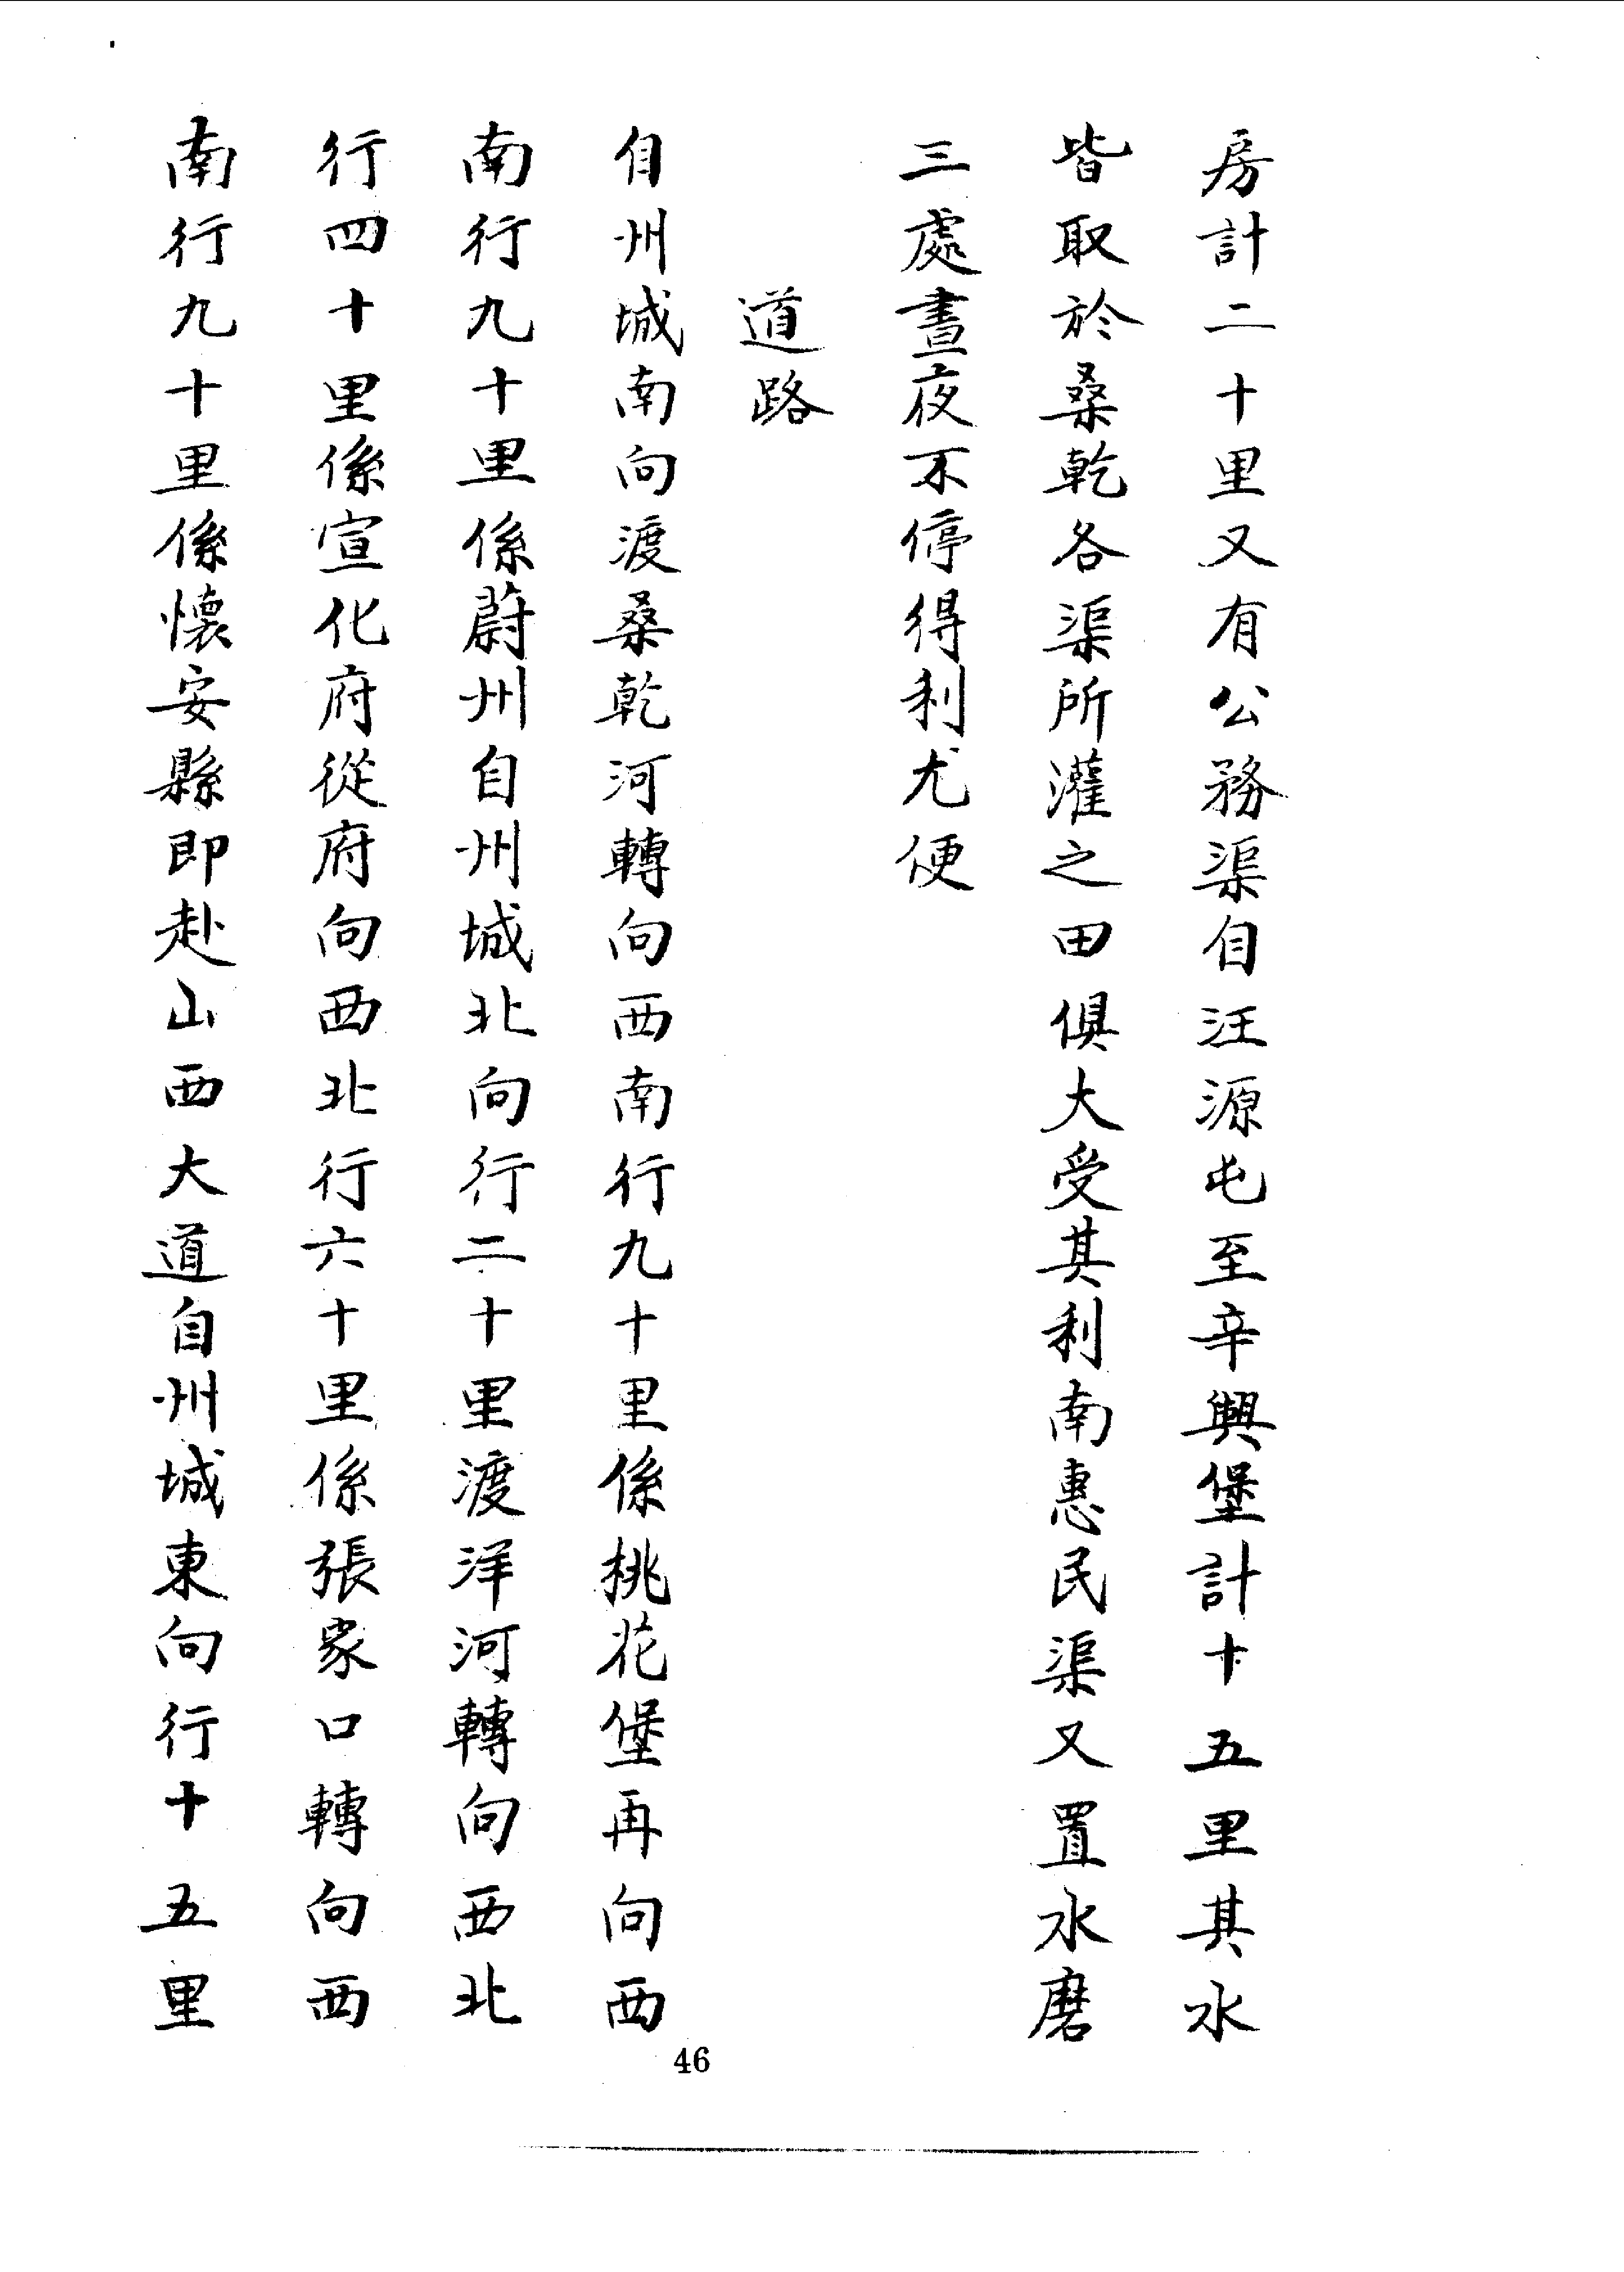 房計二十里又有公務渠自汪源屯至辛興堡計十五里其水
皆取於桑乾各渠所灌之田俱大受其利南惠民渠又置水磨
三處晝夜不停得利尤便
道路
自州城南向渡桑乾河轉向西南行九十里係桃花堡再向西
南行九十里係蔚州自州城北向行二十里渡洋河轉向西北
行四十里係宣化府從府向西北行六十里係張家口轉向西
南行九十里係懷安縣即赴山西大道自州城東向行十五里
46